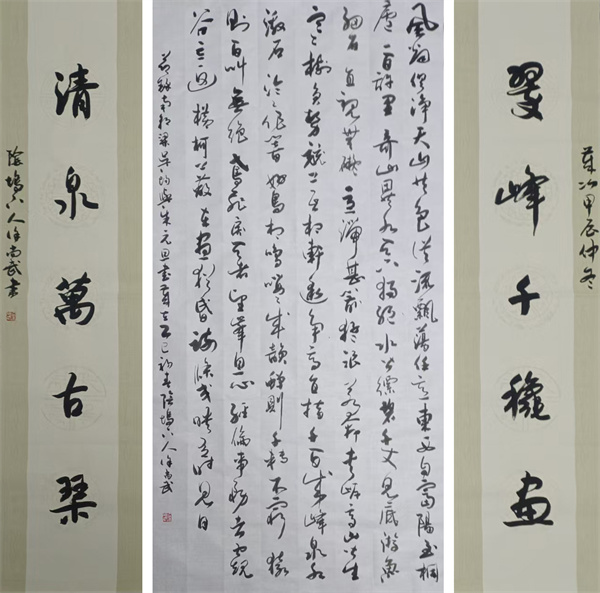 翠峰千穐畫
歲次甲辰仲冬
風烟俱淨天山共色從流飄蕩任意東西自富陽至桐
廬一百許里奇山異水天下獨絕水皆縹碧千丈見底游魚
細石直視無礙急湍甚箭猛浪若奔夾岸高山皆生
寒樹負勢競上互相軒邈爭高直指千百成峰泉水
激石泠泠作響好鳥相鳴嚶嚶成韻蟬則千轉不窮猿
則百叫無絕鳶飛戾天者望峰息心經綸事務者窺
谷忘返橫柯上蔽在晝猶昏疏條交映有時見日
錄南朝梁吳均與朱元思書歲在乙巳初春陰塢人徐尚武
清泉萬古琴
陰塢人徐尚武書